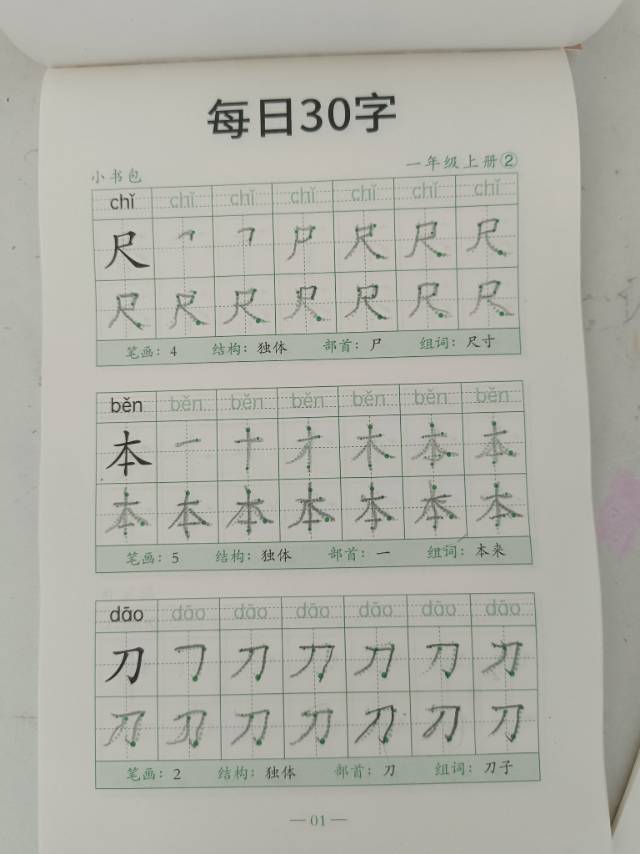 每日30字
小书包 一年级上册②
chǐ chǐ chǐ chǐ chǐ chǐ chǐ
尺 ㇕ ㇕ 尸 尺 尺 尺
尺 尺 尺 尺 尺 尺 尺
笔画：4 结构：独体 部首：尸 组词：尺寸
běn běn běn běn běn běn běn
本 一 十 才 木 本 本
本 本 本 本 本 本 本
笔画：5 结构：独体 部首：一 组词：本来
dāo dāo dāo dāo dāo dāo dāo
刀 ㇆ 刀 刀 刀 刀 刀
刀 刀 刀 刀 刀 刀 刀
笔画：2 结构：独体 部首：刀 组词：刀子
— 01 —